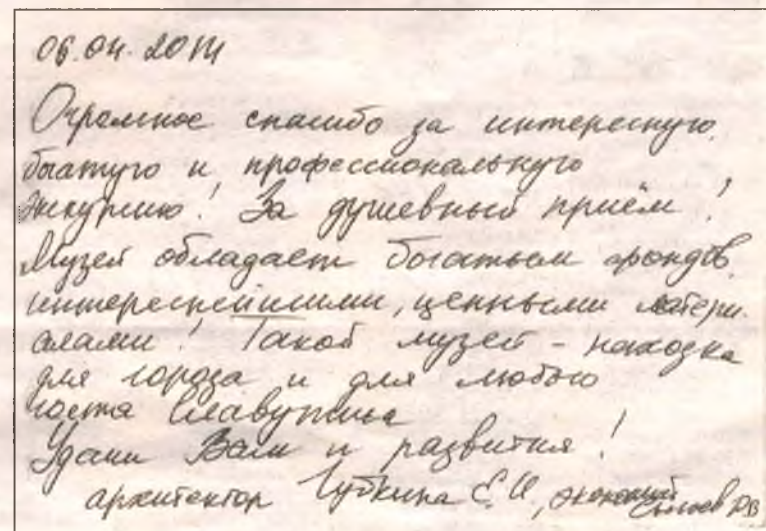 06.04.2014
Огромное спасибо за интересную,
богатую и профессиональную
экскурсию! За душевный приём!
Музей обладает богатым фондом,
интереснейшими, ценными матери-
алами! Такой музей - находка
для города и для любого
гостя Славутича
Удачи Вам и развития!
архитектор Губкина Е.И., экономист